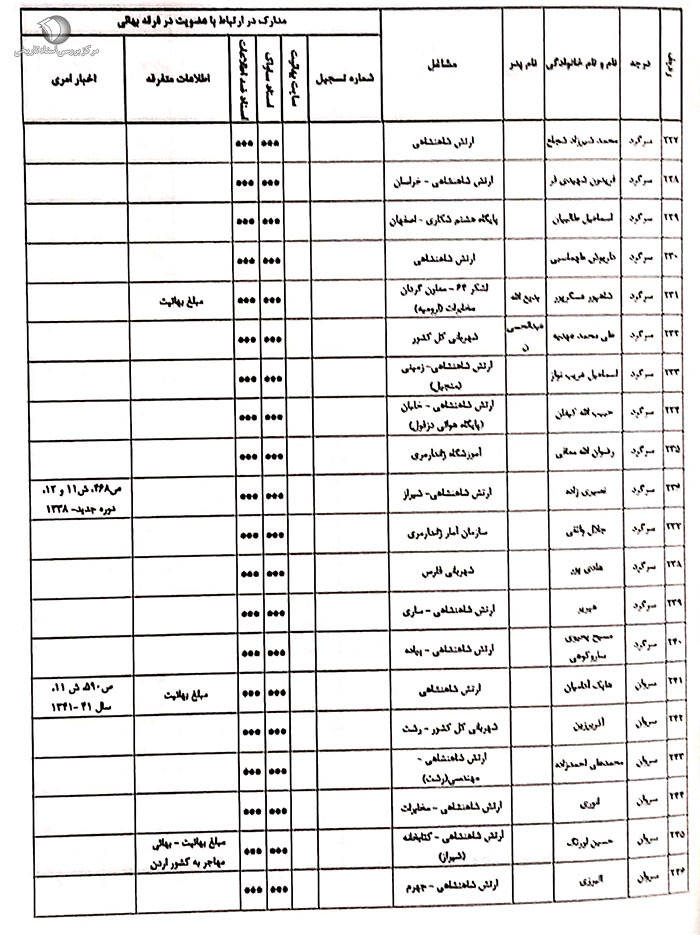 مرکز بررسی اسناد تاریخی
مدارک در ارتباط با عضویت در فرقه بهائی
ردیف درجه نام و نام خانوادگی نام پدر مشاغل شماره تسجیل سایت بهائیت اسناد ساواک اسناد ضد اطلاعات اطلاعات متفرقه اخبار امری
۲۲۷ سرگرد محمد شیرزاد شجاع ارتش شاهنشاهی *** ***
۲۲۸ سرگرد فریدون شهیدی فر ارتش شاهنشاهی - خراسان *** ***
۲۲۹ سرگرد اسماعیل طالبیان پایگاه هشتم شکاری - اصفهان *** ***
۲۳۰ سرگرد داریوش طهماسبی ارتش شاهنشاهی *** ***
۲۳۱ سرگرد شاهپور عسگرپور بدیع الله لشکر ۶۴ - معاون گردان *** *** مبلغ بهائیت
مخابرات (ارومیه)
۲۳۲ سرگرد علی محمد عبدالحسی شهربانی کل کشور *** ***
ن
۲۳۳ سرگرد اسماعیل غریب نواز ارتش شاهنشاهی- زمینی *** ***
(منجیل)
۲۳۴ سرگرد حبیب الله کیهان ارتش شاهنشاهی - خلبان *** ***
(پایگاه هوائی دزفول)
۲۳۵ سرگرد رضوان الله آموزشگاه ژاندارمری *** ***
۲۳۶ سرگرد نصیری زاده ارتش شاهنشاهی- شیراز *** *** ص۴۶۸، ش۱۱ و ۱۲،
دوره جدید- ۱۳۳۸
۲۳۷ سرگرد جلال واثقی سازمان آمار ژاندارمری *** ***
۲۳۸ سرگرد هادی پور شهربانی فارس *** ***
۲۳۹ سرگرد ارتش شاهنشاهی - ساری *** ***
۲۴۰ سرگرد مسیح یحیوی ارتش شاهنشاهی - پیاده *** ***
ساروکوهی
۲۴۱ سروان هایک آدامیان ارتش شاهنشاهی *** *** مبلغ بهائیت ص۵۹۰، ش ۱۱،
سال ۴۱ -۱۳۴۱
۲۴۲ سروان آذربرزین شهربانی کل کشور - رشت *** ***
۲۴۳ سروان محمدعلی احمدزاده ارتش شاهنشاهی - *** ***
مهندسی(رشت)
۲۴۴ سروان ارتش شاهنشاهی - مخابرات *** ***
۲۴۵ سروان حسین اورنگ ارتش شاهنشاهی - کتابخانه *** *** مبلغ بهائیت - بهائی
(شیراز) مهاجر به کشور اردن
۲۴۶ سروان البرزی ارتش شاهنشاهی - جهرم *** ***